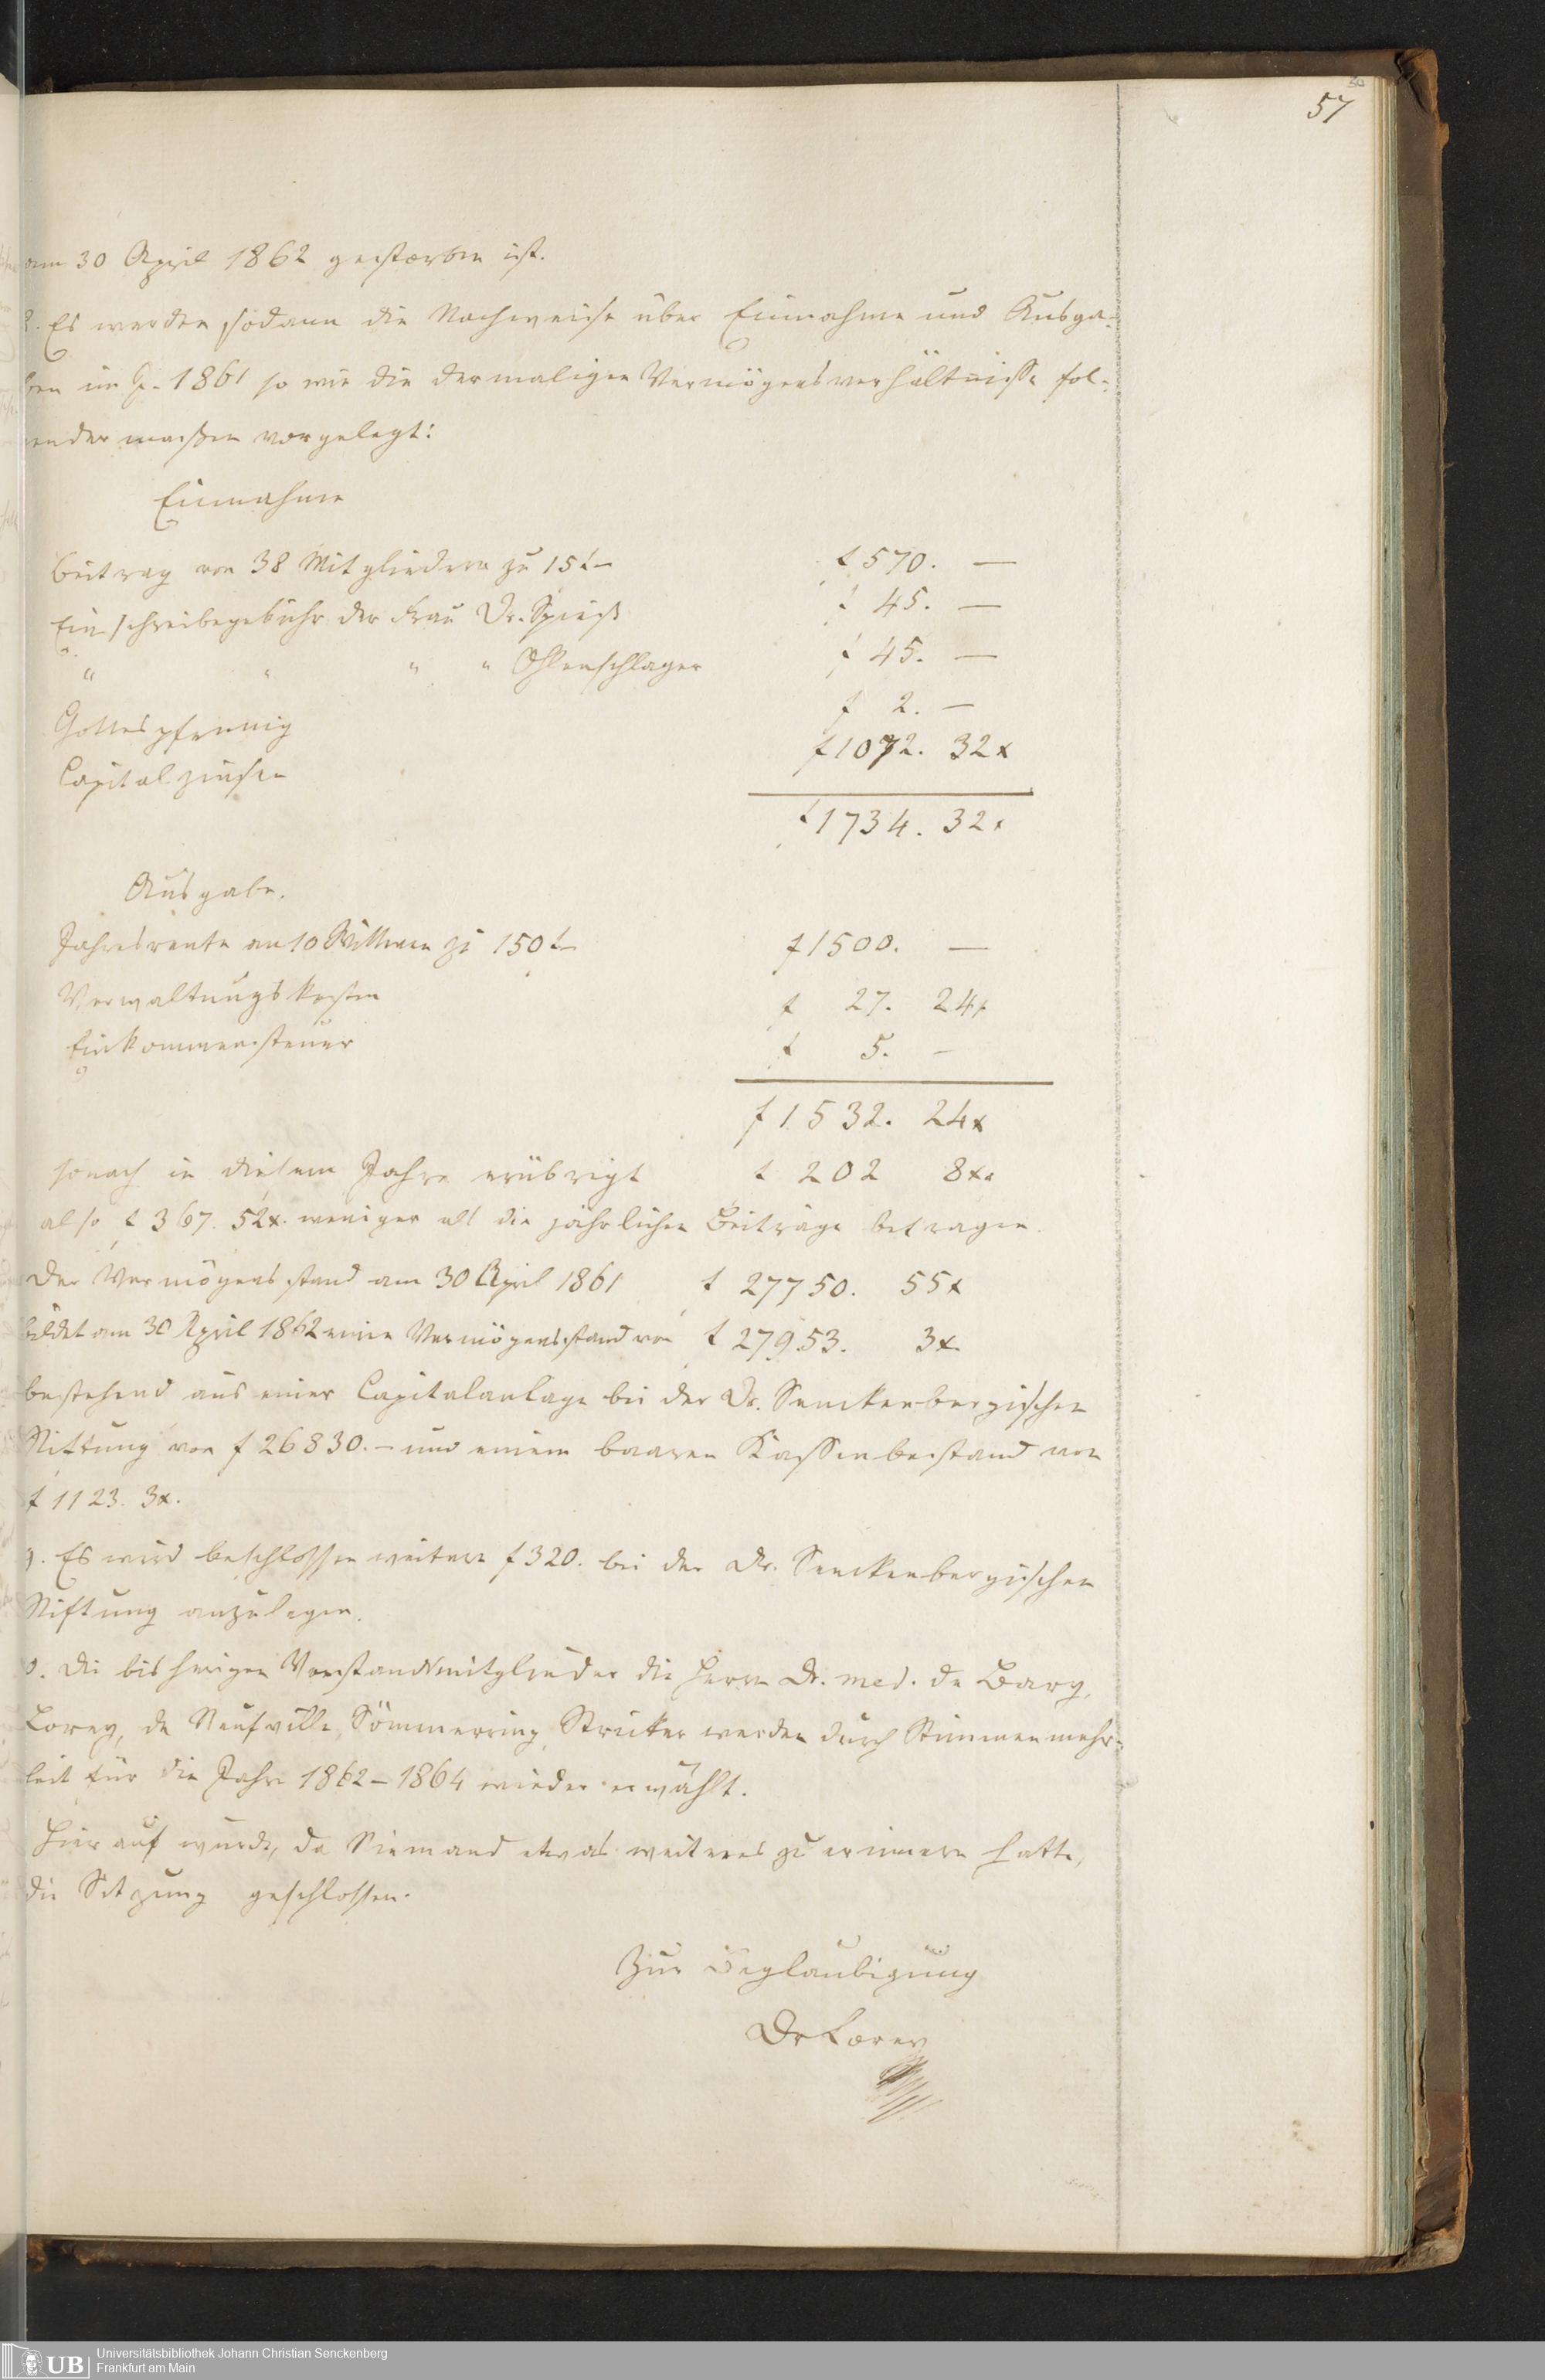 57
am 30 April 1862 gestorben ist.
2. Es werden sodann die Nachweise über Einnahme und Ausga-
ben im J. 1861 so wie die dermaligen Vermögensverhältnisse fol-
gender massen vorgelegt:
Einnahme
Beitrag von 38 Mitgliedern zu 15 f – f 570. —
Einschreibegebühr der Frau Dr. Spiess f 45. —
" " " " Ohlenschlager f 45. —
Gottespfennig f 2. —
Capitalzinsen f 1072. 32 x
f 1734. 32 x
Ausgabe.
Jahresrente an 10 Wittwen zu 150 f – f 1500. —
Verwaltungskosten f 27. 24 x
Einkommensteuer f 5. –
f 1532. 24 x
sonach in diesem Jahre erübrigt f 202 8 x.
also f 367. 52 x. weniger als die jährlichen Beiträge betragen.
Der Vermögensstand am 30 April 1861 f 27750. 55 x
bildet am 30 April 1862 einen Vermögensstand von f 27953. 3 x.
bestehend aus einer Capitalanlage bei der Dr. Senckenbergischen
Stiftung von f 26830. – und einem baaren Kassenbestand von
f 1123. 3 x.
Es wird beschlossen weitere f 320. bei der Dr. Senckenbergischen
Stiftung anzulegen.
Die bisherigen Vorstandsmitglieder die Herrn Dr. med. de Bary,
Lorey, de Neufville, Sömmerring, Stricker werden durch Stimmenmehr-
heit für die Jahre 1862–1864 wieder erwählt.
Hierauf wurde, da Niemand etwas weiteres zu erinnern hatte,
die Sitzung geschlossen.
Zur Beglaubigung
Dr Lorey
UB
Universitätsbibliothek Johann Christian Senckenberg
Frankfurt am Main